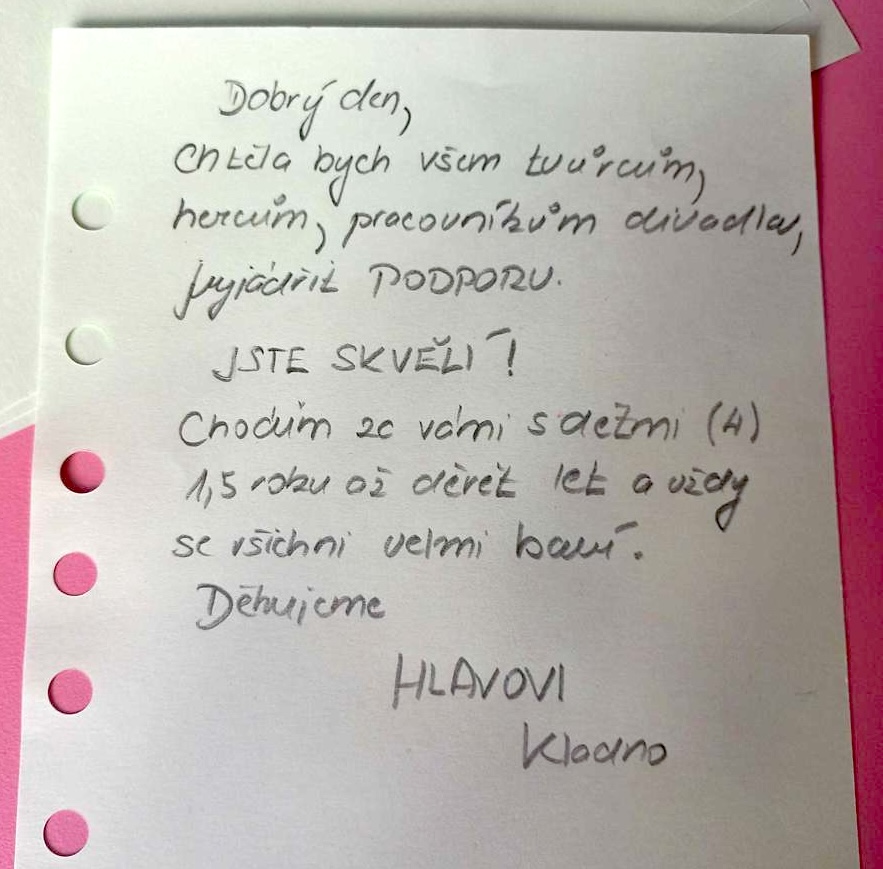 Dobrý den,
Chtěla bych všem tvůrcům,
hercům, pracovníkům divadla,
vyjádřit PODPORU.
JSTE SKVĚLÍ!
Chodím za vámi s dětmi (4)
1,5 roku až devět let a vždy
se všichni velmi baví.
Děkujeme
HLAVOVI
Kladno